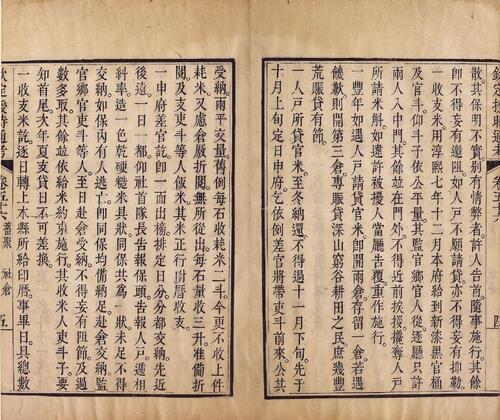 欽定授時通考
四
散其保明不實別有情弊者許人告首隨事施行其餘
即不得妄有邀阻如人戶不願請貸亦不得妄有抑勒
一收支米用淳熙七年十二月本府給到新漆黑官桶
及官斗仰斗子依公平量其監官鄉官人從逐廳只許
兩人入中門其餘並在門外不得近前挨拶攙奪人戶
所請米斛如違許被擾人當廳告覆重作施行
一豐年如遇人戶請貸官米即開兩倉存留一倉若遇
饑歉則開第三倉專賑貸深山窮谷耕田之民庶幾豐
荒賑貸有節
一人戶所貸官米至冬納還不得過十一月下旬先于
十月上旬定日申府乞依例差官將帶吏斗前來公共
受納兩平交量舊例每石收耗米二斗今更不收上件
耗米又慮倉厫折閱無所從出每石量收三升準備折
閱及支吏斗等人飯米其米正行附曆收支
一申府差官訖即一面出榜排定日分分都交納先近
後遠一日一都仰社首隊長告報保頭告報人戶遞相
糾率造一色乾硬糙米具狀同保共為一狀未足不得
交納如保內有人逃亡即同保均備納足赴倉交納監
官鄉官吏斗等人至日赴倉受納不得妄有阻節及過
數多取其餘並依給米約束施行其收米人吏斗子要
知首尾次年夏支貸日不可差換
一收支米訖逐日轉上本縣所給印曆事畢日具總數
欽定授時通考
卷五十六
蓄聚
社倉
五